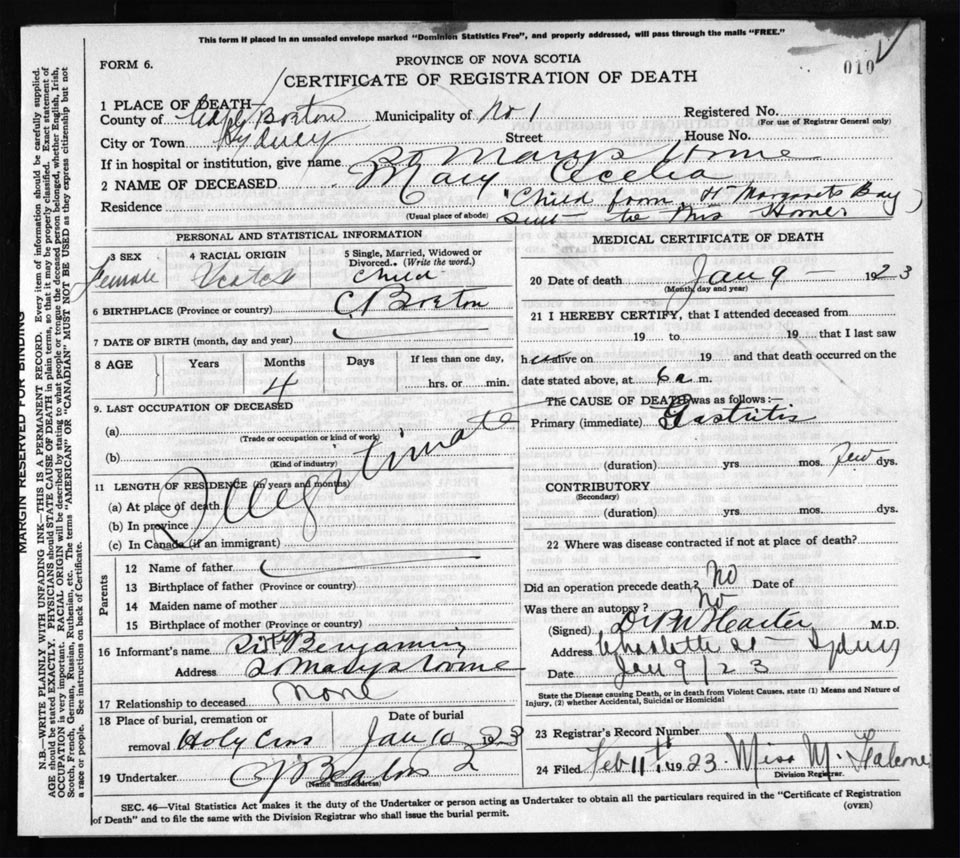 This form if placed in an unsealed envelope marked "Dominion Statistics Free", and properly addressed, will pass through the mails "FREE."
FORM 6.
PROVINCE OF NOVA SCOTIA
010
CERTIFICATE OF REGISTRATION OF DEATH
1 PLACE OF DEATH—
County of Cape Breton Municipality of No 1 Registered No.
(For use of Registrar General only)
City or Town Sydney Street House No.
If in hospital or institution, give name St Marys Home
2 NAME OF DECEASED Mary Cecelia
Residence "Child from St Margarets Bay)
(Usual place of abode) sent to this Home
PERSONAL AND STATISTICAL INFORMATION
3 SEX 4 RACIAL ORIGIN 5 Single, Married, Widowed or Divorced. (Write the word.)
Female Scotch Child
6 BIRTHPLACE (Province or country) C Breton
7 DATE OF BIRTH (month, day and year)
8 AGE Years Months Days If less than one day,
4 hrs. or min.
9. LAST OCCUPATION OF DECEASED
(a)
(Trade or occupation or kind of work)
(b)
(Kind of industry)
Illegitimate
11 LENGTH OF RESIDENCE (in years and months)
(a) At place of death
(b) In province
(c) In Canada (if an immigrant)
Parents
12 Name of father
13 Birthplace of father (Province or country)
14 Maiden name of mother
15 Birthplace of mother (Province or country)
16 Informant's name Sister Benjamin
Address St Marys Home
17 Relationship to deceased None
18 Place of burial, cremation or Date of burial
removal Holy Cross Jan 10 1923
19 Undertaker
(Name and address)
MEDICAL CERTIFICATE OF DEATH
20 Date of death Jan 9 — 1923
(Month, day and year)
21 I HEREBY CERTIFY, that I attended deceased from
19 to 19 that I last saw
h er alive on 19 and that death occurred on the
date stated above, at 6 a m.
The CAUSE OF DEATH was as follows:
Primary (immediate) Gastritis
(duration) yrs. mos. few dys.
CONTRIBUTORY
(Secondary)
(duration) yrs. mos. dys.
22 Where was disease contracted if not at place of death?
Did an operation precede death? No Date of
Was there an autopsy? No
(Signed) M.D.
Address Charlotte St — Sydney
Date Jan 9/23
State the Disease causing Death, or in death from Violent Causes, state (1) Means and Nature of
Injury, (2) whether Accidental, Suicidal or Homicidal
23 Registrar's Record Number
24 Filed Feb 11th 1923 Miss M.
Division Registrar.
SEC. 46—Vital Statistics Act makes it the duty of the Undertaker or person acting as Undertaker to obtain all the particulars required in the "Certificate of Registration
of Death" and to file the same with the Division Registrar who shall issue the burial permit.
(OVER)
MARGIN RESERVED FOR BINDING
N.B.—WRITE PLAINLY WITH UNFADING INK—THIS IS A PERMANENT RECORD. Every item of information should be carefully supplied.
AGE should be stated EXACTLY. PHYSICIANS should STATE CAUSE OF DEATH in plain terms, so that it may be properly classified. Exact statement of
OCCUPATION is very important. RACIAL ORIGIN will be described by stating to what people or tongue the deceased person belonged, whether English, Irish,
Scotch, French, German, Russian, Ruthenian, etc. The terms "AMERICAN" OR "CANADIAN" MUST NOT BE USED as they express citizenship but not
a race or people. See instructions on back of Certificate.